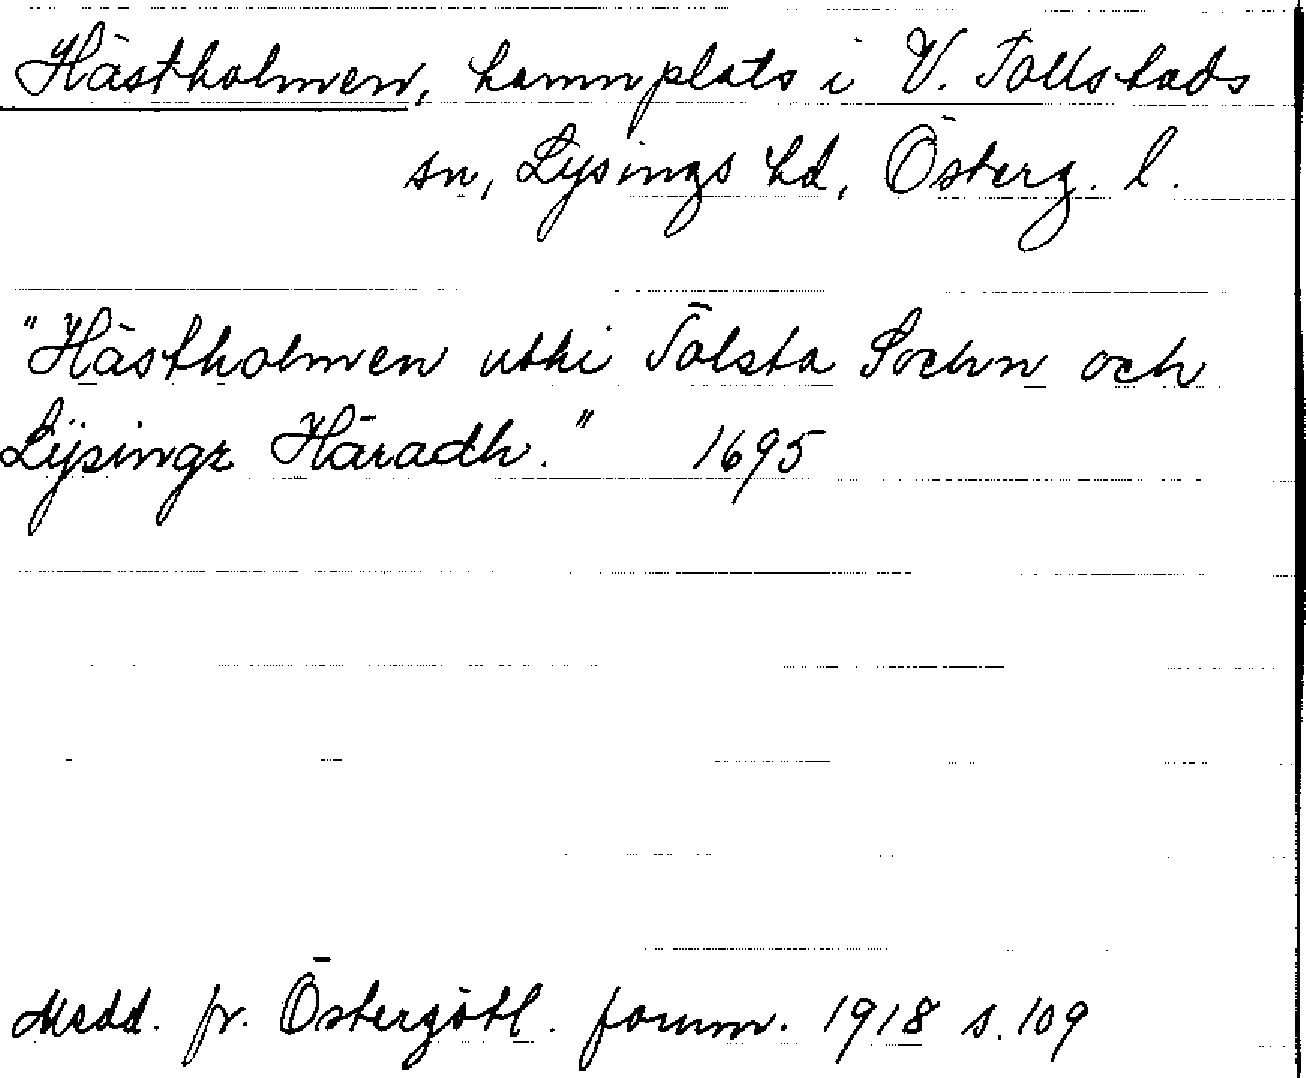 Hästholmen, hamnplats i V. Tollstads
sn, Lysings hd, Österg. l.
"Hästholmen uthi Tolsta Sochn och
Lÿsingz Häradh." 1695
Medd. fr. Östergötl. fornm. 1918 s. 109